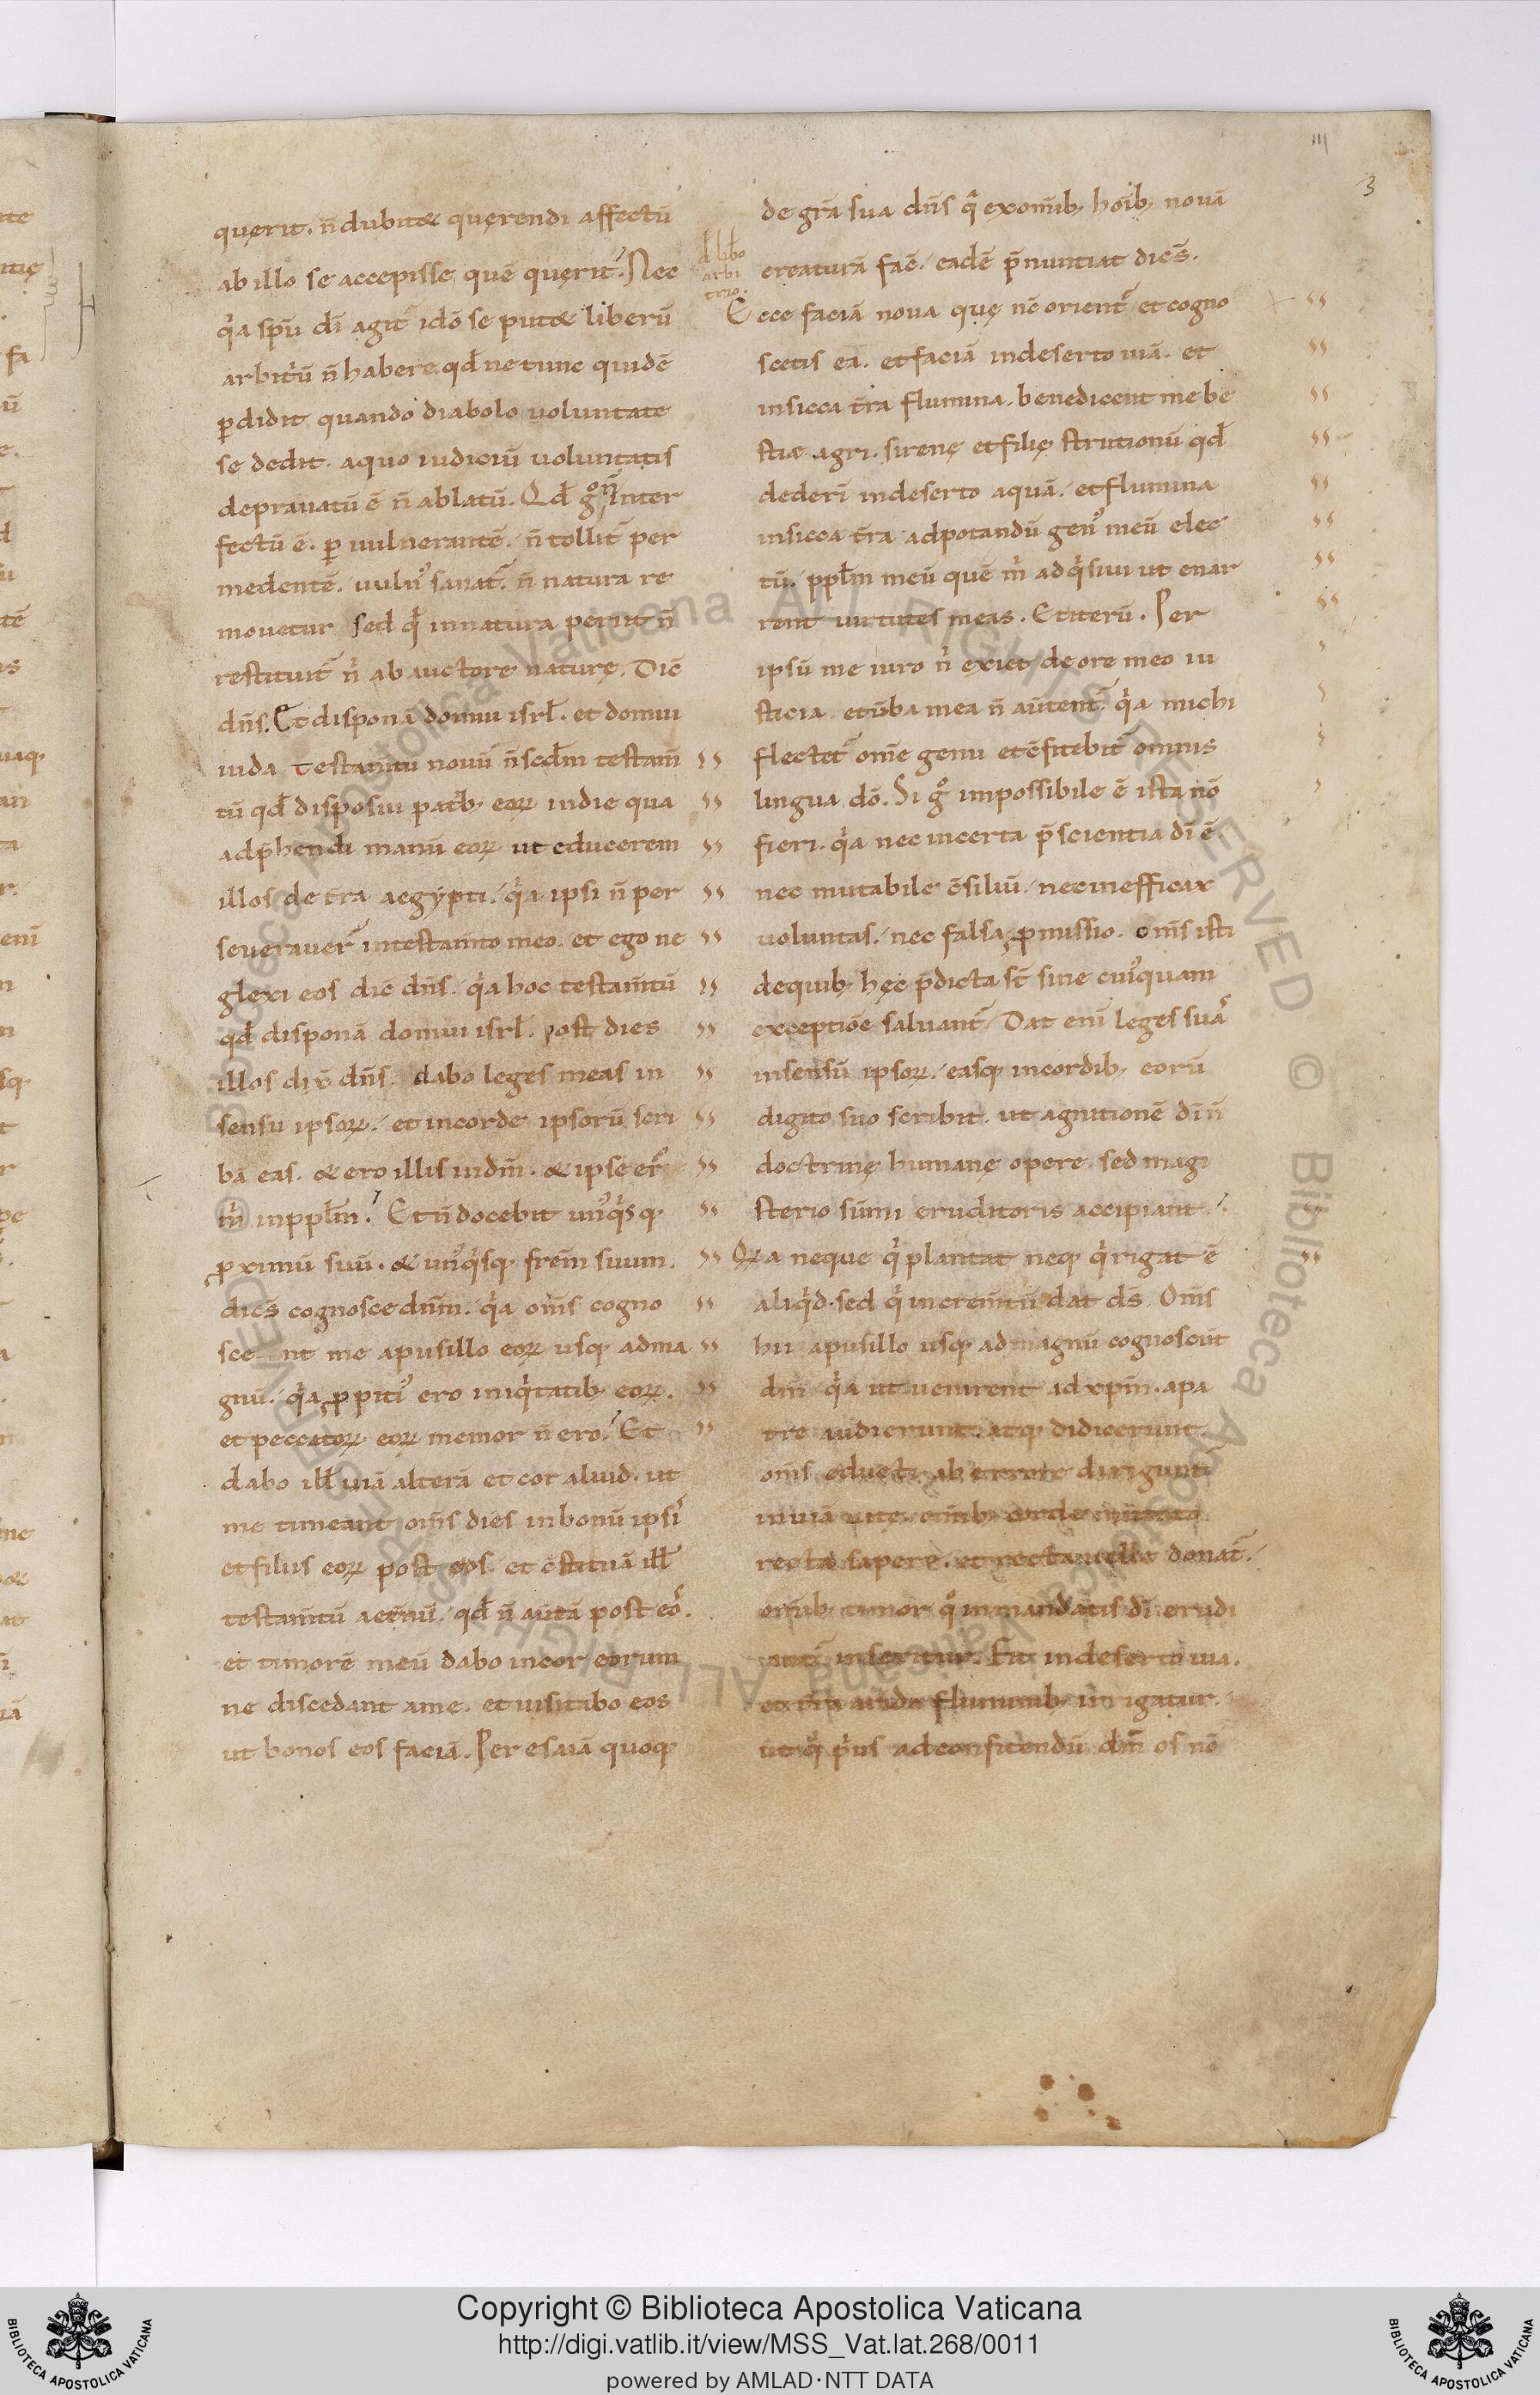 3
quęrit. n̄ dubit& quęrendi affectū
ab illo se accepisse quē quęrit? Nec
q̇a sp̄u dī agit̄ idō se put& liberū
arbitriū n̄ habere qd̄ ne tunc quidē
ꝑdidit quando diabolo voluntate
se dedit. a quo iudiciū voluntatis
depravatū ē n̄ ablatū. Qd̄ gͦ n̄ inter
fectū ē. ꝑ vulnerantē. n̄ tollit̄ per
medentē. vuln᾿ sanat̄. n̄ natura re
movetur sed qđ in natura periit n̄
restituit̄ n̓ ab auctore naturę. Dic̄
dn̄s. Et disponā domui isrł. et domui
iuda testam̄tū novū n̄ scdm̄ testam̄
tū qd̄ disposui patrib; eoꝝ in die qua
adp̄hendi manū eoꝝ ut educerem
illos de t̄ra aegypti. q̇a ipsi n̄ per
severaver̄ in testam̄to meo. et ego ne
glexi eos dic̄ dn̄s. q̇a hoc testam̄tū
qd̄ disponā domui isrł. post dies
illos dix̄ dn̄s. dabo leges meas in
sensu ipsoꝝ. et in corde ipsorū scri
bā eas. & ero illis in dm̄. & ipse er̄
m̓ in ppłm? Et n̄ docebit un᾿q̇sq;
ꝓximū suū. & un᾿q̇sq; frem̄ suum.
dicēs cognosce dnm̄. q̇a om̄s cogno
scent me a pusillo eoꝝ usq; ad ma
gnū. q̇a ꝓpiti᾿ ero iniq̇tatib; eoꝝ.
et peccatoꝝ eoꝝ memor n̄ ero? Et
dabo ill̄ viā alterā et cor aliud. ut
me timeant om̄s dies in bonū ipsi᾿
et filiis eoꝝ post eos. et c̄stituā ill̄
testam̄tū aet̄nū. qd̄ n̄ av̄tā post eo᾿.
et timorē meū dabo in cor eorum
ne discedant a me. et visitabo eos
ut bonos eos faciā. Per esaiā quoq;
d libo
arbi
trio.
de grā sua dn̄s qͣ ex om̄ib; hoīb; novā
creaturā fac̄. eadē p̄nuntiat dicēs.
Ecce faciā nova quę nc̄ orient̄ et cogno
scetis ea. et faciā in deserto viā. et
in sicca t̄ra flumina. benedicent me be
stiae agri. sirenę et filię strutionū qd̄
dederī in deserto aquā. et flumina
in sicca t̄ra ad potandū gen᾿ meū elec
tū. ppłm meū quē m̓ adq̇sivi ut enar
rent virtutes meas. Et iterū. Per
ipsū me iuro n̓ exiet de ore meo iu
sticia. et v̄ba mea n̄ av̄tent̄. q̇a michi
flectet̄ om̄e genu et c̄fitebit̄ omnis
lingua dō. Si gͦ impossibile ē ista nō
fieri. q̇a nec incerta p̄scientia dī ē.
nec mutabile c̄siliū. nec inefficax
voluntas. nec falsa ꝓmissio. om̄s isti
de quib; hęc p̄dicta st̄ sine cui᾿quam
exceptiōe salvant̄. Dat enī leges sua᾿
in sensū ipsoꝝ. easq; in cordib; eorū
digito suo scribit. ut agnitionē dī n̄
doctrinę humanę opere. sed magi
sterio sūmi eruditoris accipiant.
Quia neque q̇ plantat neq; q̇ rigat ē
aliq̇d. sed q̇ increm̄tū dat ds̄. Om̄s
hii a pusillo usq; ad magnū cognoscūt
dm̄ q̇a ut venirent ad xpm̄. a pa
tre audierunt. atq; didicerunt.
om̄s educti ab errore dirigunt̄
in viā vitę. om̄ib; corde mutato
recta sapere. et recta velle donat̄.
om̄ib; timor qͦ in mandatis dī erudi
ant̄ inseritur. Fit in deserto via.
et t̄ra arida fluminib; irrigatur.
et qͥ p̓us ad confitendū dm̄ os nō
Copyright © Biblioteca Apostolica Vaticana
http://digi.vatlib.it/view/MSS_Vat.lat.268/0011
powered by AMLAD·NTT DATA